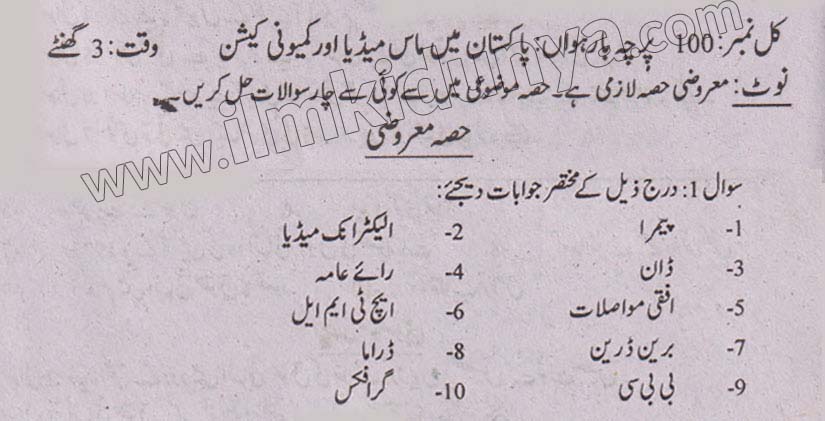 کل نمبر: 100 پرچہ چارہواں: پاکستان میں ماس میڈیا اور کمیونی کیشن وقت: 3 گھنٹے
نوٹ: معروضی حصہ لازمی ہے۔ حصہ موضوعی میں سے کوئی سے چار سوالات حل کریں۔
www.ilmkidunya.com
حصہ معروضی
سوال 1: درج ذیل کے مختصر جوابات دیجئے:
1- پیمرا 2- الیکٹرانک میڈیا
3- ڈان 4- رائے عامہ
5- افقی مواصلات 6- ایچ ٹی ایم ایل
7- برین ڈرین 8- ڈراما
9- بی بی سی 10- گرافکس